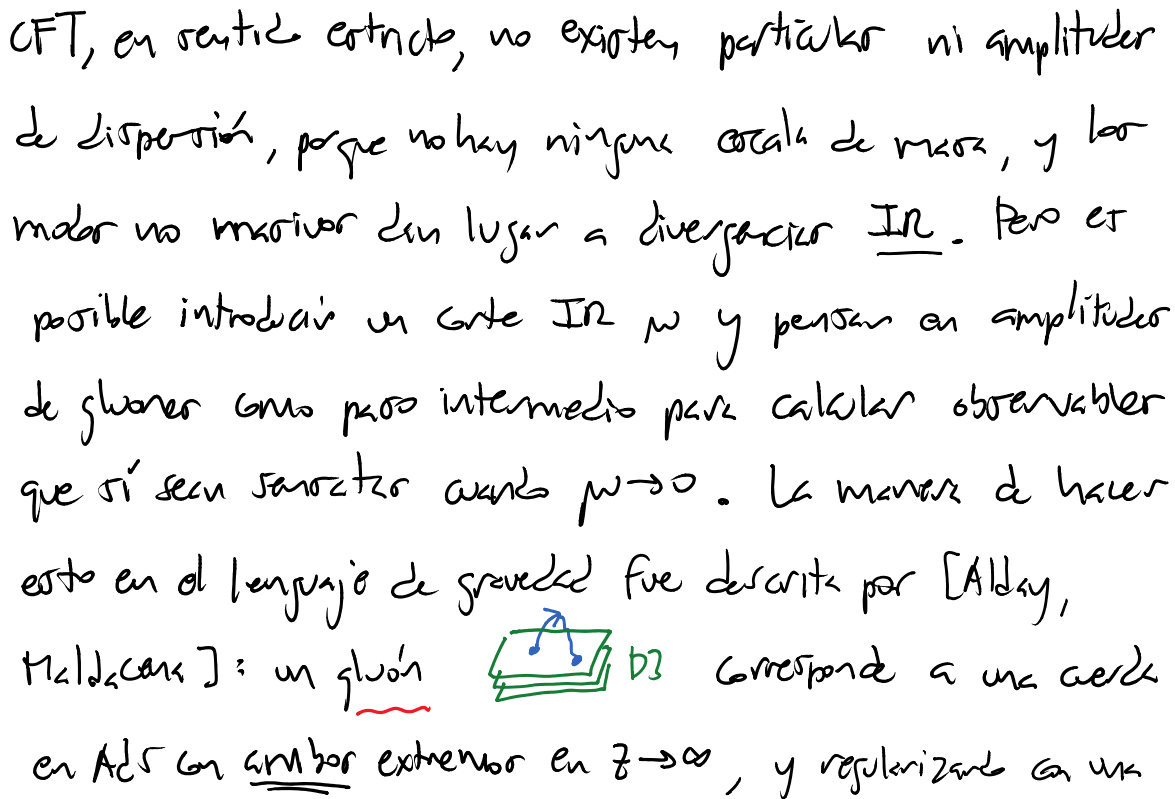 CFT, en sentido estricto, no existen partículas ni amplitudes
de dispersión, porque no hay ninguna escala de masa, y los
modos no masivos dan lugar a divergencias IR. Pero es
posible introducir un corte IR μ y pensar en amplitudes
de gluones como paso intermedio para calcular observables
que sí sean sensatos cuando μ→0. La manera de hacer
esto en el lenguaje de gravedad fue descrita por [Alday,
Maldacena]: un gluón D3 corresponde a una cuerda
en AdS con ambos extremos en z→∞, y regularizando con una